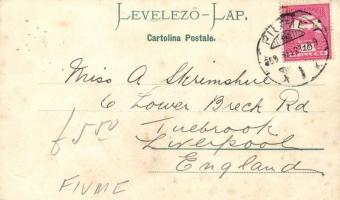 LEVELEZŐ-LAP.
Cartolina Postale.
Miss A Skrimshire
6 Lower Breck Rd
Tuebrook
Liverpool
England
£5.50
FIUME
10